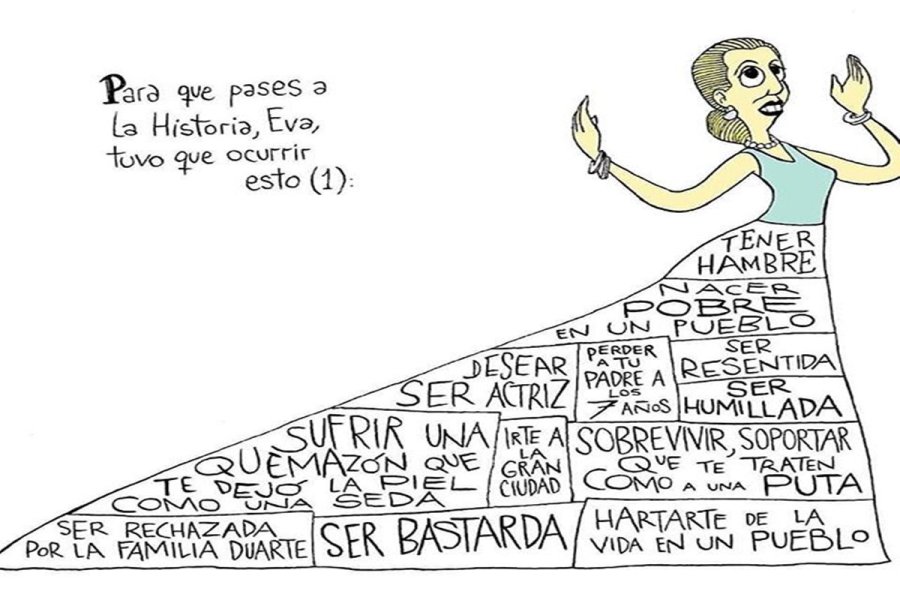 Para que pases a
la Historia, Eva,
tuvo que ocurrir
esto (1):
TENER
HAMBRE
NACER
POBRE
EN UN PUEBLO
DESEAR
SER ACTRIZ
PERDER
A TU
PADRE A
LOS
7 AÑOS
SER
RESENTIDA
SER
HUMILLADA
SUFRIR UNA
QUEMAZÓN QUE
TE DEJÓ LA PIEL
COMO UNA SEDA
IRTE A
LA
GRAN
CIUDAD
SOBREVIVIR, SOPORTAR
QUE TE TRATEN
COMO A UNA PUTA
SER RECHAZADA
POR LA FAMILIA DUARTE
SER BASTARDA
HARTARTE DE LA
VIDA EN UN PUEBLO